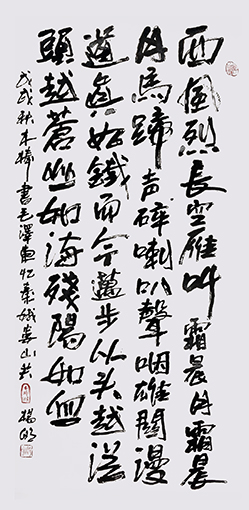 西風烈長空雁叫霜晨月霜晨
月馬蹄声碎喇叭聲咽雄關漫
道真如鐵而今邁步从头越從
頭越蒼山如海殘陽如血
戊戌秋書毛澤東忆秦娥娄山关
楊明